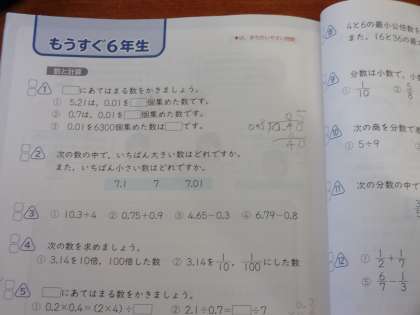 もうすぐ6年生
数と計算
1 □にあてはまる数をかきましょう。
① 5.21は、0.01を□個集めた数です。
② 0.7は、0.01を□個集めた数です。
③ 0.01を6300個集めた数は□です。
2 次の数の中で、いちばん大きい数はどれですか。
また、いちばん小さい数はどれですか。
7.1 7 7.01
3 ① 10.3+4 ② 0.75+0.9 ③ 4.65-0.3 ④ 6.79-0.8
4 次の数を求めましょう。
① 3.14を10倍、100倍した数 ② 3.14を1/10、1/100にした数
5 □にあてはまる数をかきましょう。
① 0.2×0.4=(2×4)÷□ ② 2.1÷0.7=□÷7
8 4と6の最小公倍数を
また、16と36の最
9 分数は小数で、小数
① 1/10
10 次の商を分数で表
① 5÷9
11 次の分数の中で
12 ① 1/2+1/7
⑤ 6/7-1/3